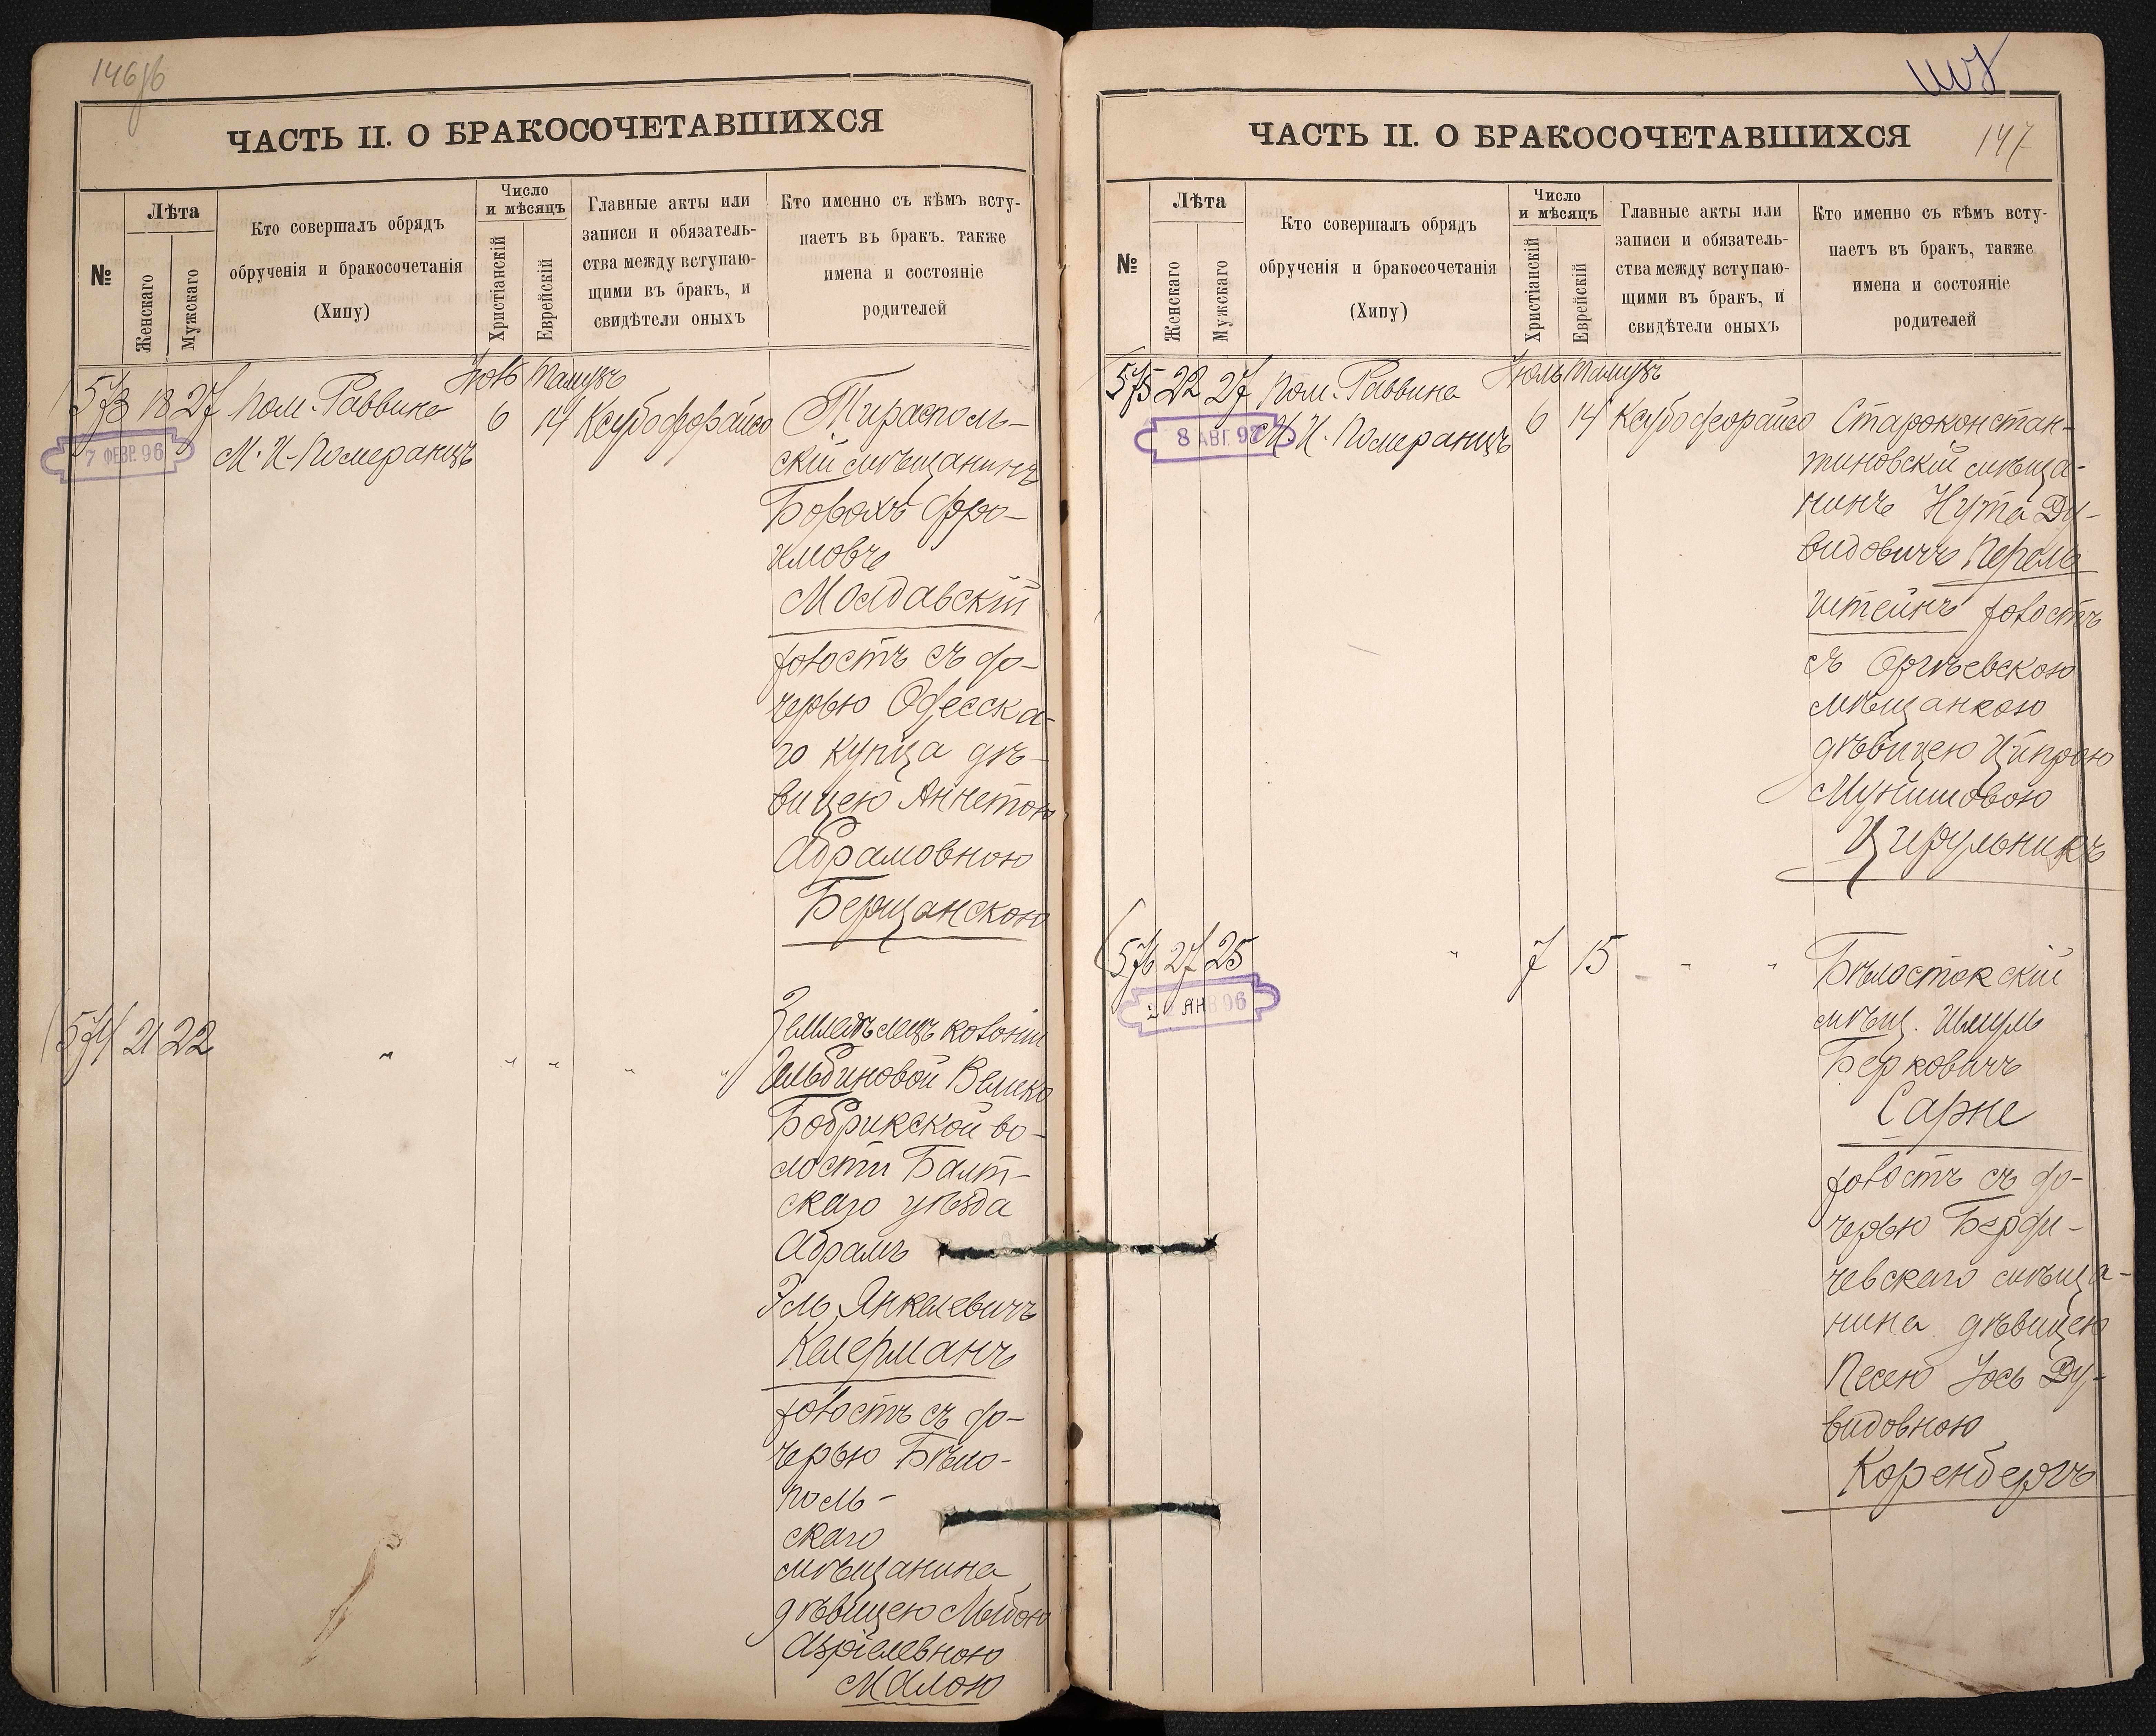 146/б
ЧАСТЬ II. О БРАКОСОЧЕТАВШИХСЯ
№
Лѣта
Женскаго
Мужскаго
Кто совершалъ обрядъ
обрученія и бракосочетанія
(Хипу)
Число
и мѣсяцъ
Христіанскій
Еврейскій
Главные акты или
записи и обязатель-
ства между вступаю-
щими въ бракъ, и
свидѣтели оныхъ
Кто именно съ кѣмъ всту-
паетъ въ бракъ, также
имена и состояніе
родителей
Іюль Тамузъ
573 18 27 Пом. Раввина 6 14
М. И. Померанцъ
7 ФЕВР. 96
Тирасполь-
скій мѣщанинъ
Борохъ Фро-
имовъ
Молдавскій
холостъ съ до-
черью Одесска-
го купца дѣ-
вицею Аннетою
Абрамовною
Берщанскою
574 21 22 " " " " "
Земледѣлецъ колоніи
Гильбиновой Велико
Бобрикской во-
лости Балт-
скаго уѣзда
Абрамъ
Эль Янкелевичъ
Келерманъ
холостъ съ до-
черью Бѣло-
поль-
скаго
мѣщанина
дѣвицею
Азріелевною
Малою
147
ЧАСТЬ II. О БРАКОСОЧЕТАВШИХСЯ
№
Лѣта
Женскаго
Мужскаго
Кто совершалъ обрядъ
обрученія и бракосочетанія
(Хипу)
Число
и мѣсяцъ
Христіанскій
Еврейскій
Главные акты или
записи и обязатель-
ства между вступаю-
щими въ бракъ, и
свидѣтели оныхъ
Кто именно съ кѣмъ всту-
паетъ въ бракъ, также
имена и состояніе
родителей
Іюль Тамузъ
575 22 27 Пом. Раввина 6 14
М. И. Померанцъ
8 АВГ. 97
Староконстан-
тиновскій мѣща-
нинъ Нута Ду-
видовичъ Перель
штейнъ холостъ
съ Оргѣевскою
мѣщанкою
дѣвицею Ципрою
Мунишовою
Цирульникъ
576 27 25 " 7 15 " " "
ЯНВ 96
Бѣлостокскій
мѣщ. Шмуль
Берковичъ
Сарне
холостъ съ до-
черью Берди-
чевскаго мѣща-
нина дѣвицею
Песею Хось Ду-
видовною
Коренбергъ